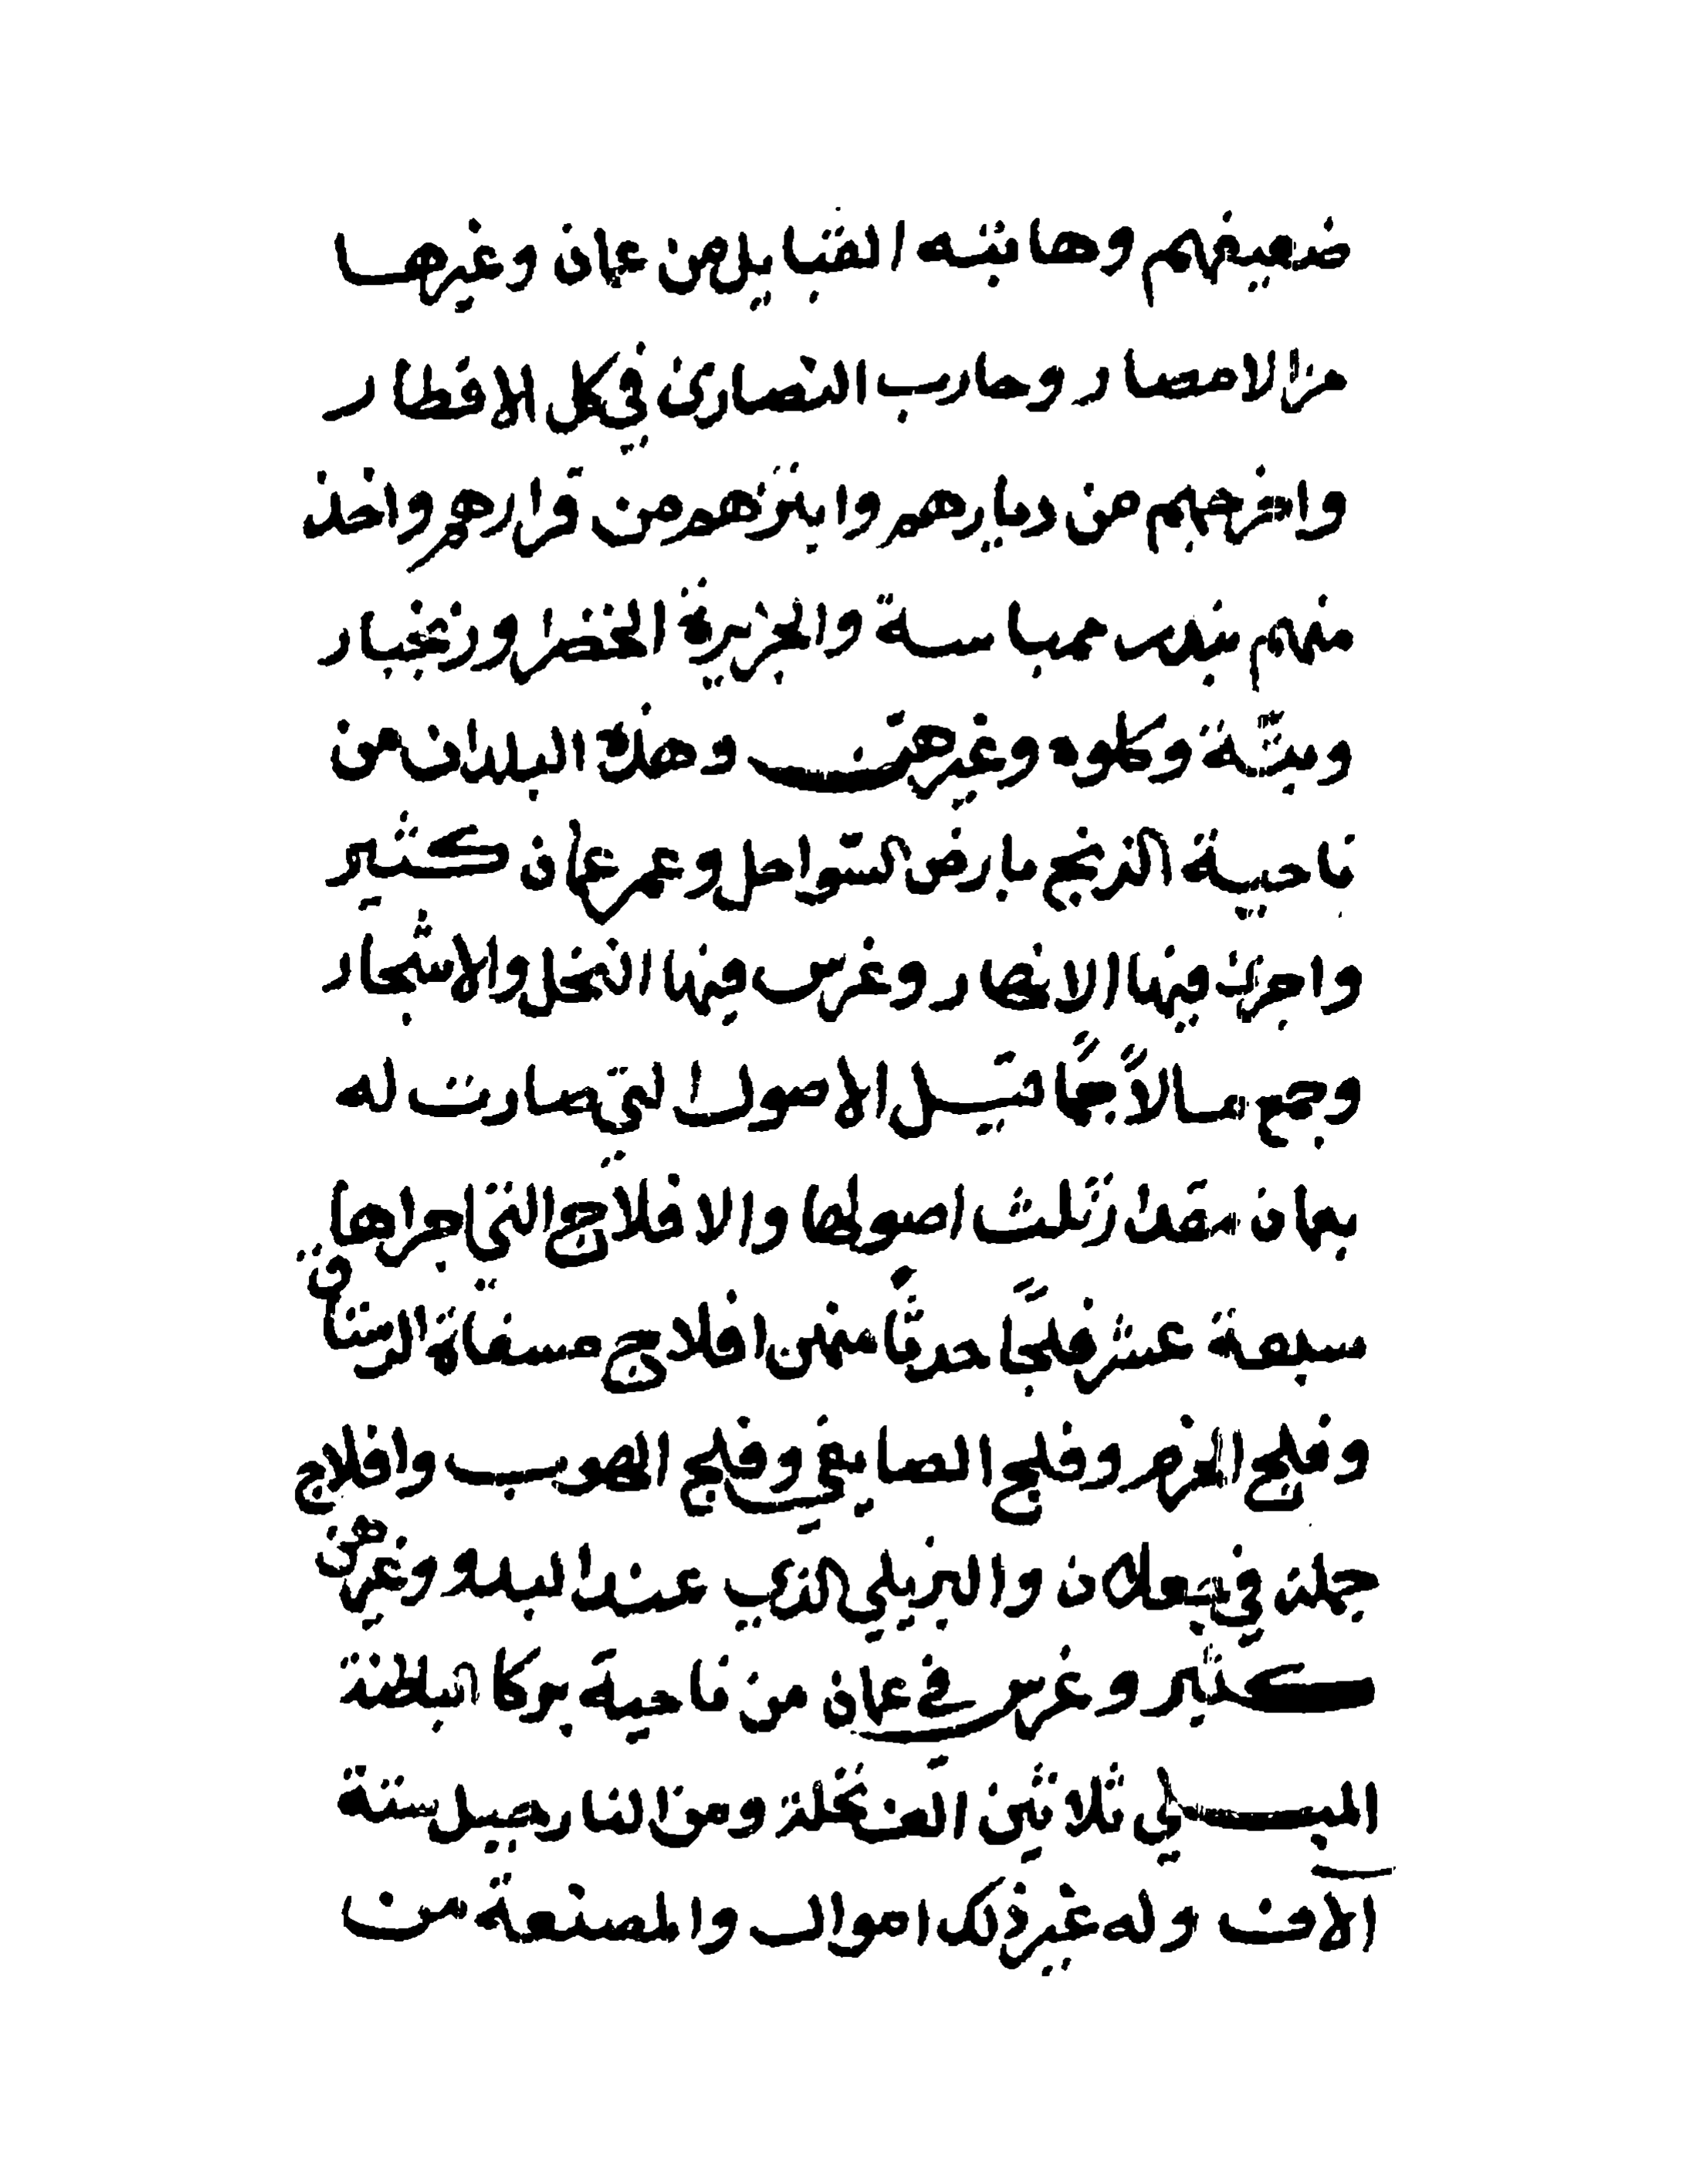 ضعيفهم وهابته القبايل من عمان وغيرها
من الامصار وحارب النصارى في كل الاقطار
واخرجهم من ديارهم وابتزهم من قرارهم واخذ
منهم بندر ممباسة والجزيرة الخضرا وزنجبار
وبتّة وكلوه وغيرهن وهذه البلدان من
ناحية الزنج بارض السواحل وعمر عمان كثير
واجرى فيها الانهار وغرس فيها النخل والاشجار
وجمع مالاً جمًا قيل الاصول التي صارت له
بعمان مقدار ثلث اصولها والافلاج التي اجراها
سبعة عشر فلجًا حدثًا منهن افلاج مسفاة الرستاق
وفلج الحزم وفلج الصايغي وفلج الهوب وافلاج
جملة في جعلان والبزيلي الذي عند البدو وغيرهن
كثير وغرس في عمان من ناحية بركا الباطنة
المبسلي ثلاثين الف نخلة ومن النارجيل ستة
آلاف وله غير ذلك اموال والمصنعة من